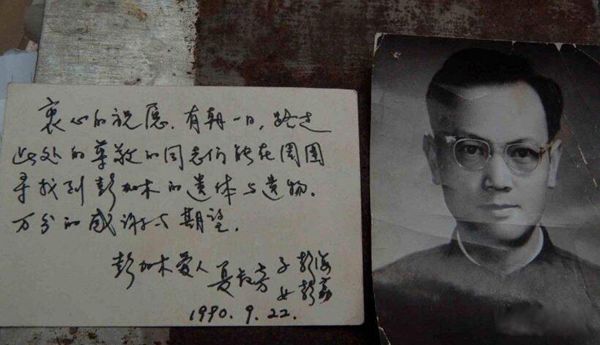 衷心的祝愿，有朝一日，路过
此处的尊敬的同志们能在周围
寻找到彭加木的遗体与遗物．
万分的感谢与期望．
彭加木爱人 夏叔芳 子 彭海
女 彭荔
1980．9．22．